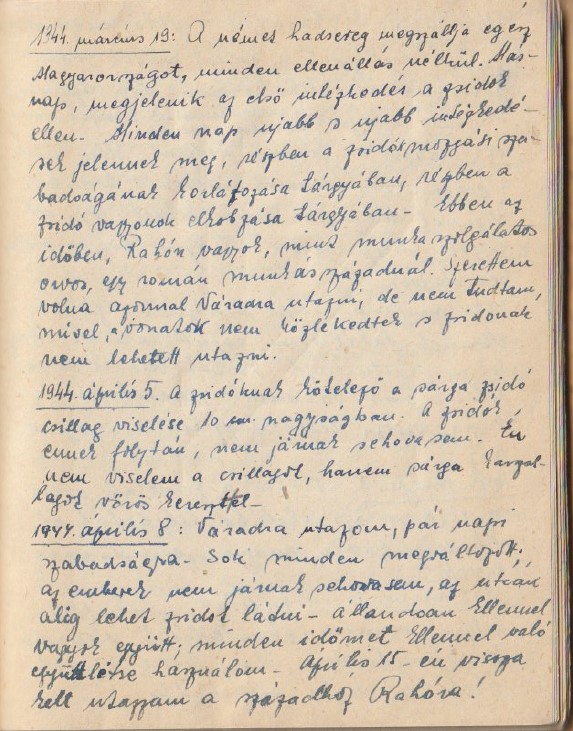 1944. március 19: A német hadsereg megszállja egész
Magyarországot, minden ellenállás nélkül. Más-
nap, megjelenik az első intézkedés a zsidók
ellen. Minden nap ujabb s ujabb intézkedé-
sek jelennek meg, részben a zsidók mozgási sza-
badságának korlátozása tárgyában, részben a
zsidó vagyonok elkobzása tárgyában - Ebben az
időben, Rahón vagyok, mint munkaszolgálatos
orvos, egy román munkásszázadnál. Szerettem
volna azonnal Váradra utazni, de nem tudtam,
mivel, a vonatok nem közlekedtek s zsidónak
nem lehetett utazni.
1944. április 5. A zsidóknak kötelező a sárga zsidó
csillag viselése 10 cm. nagyságban. A zsidók
ennek folytán, nem járnak sehovasem. Én
nem viselem a csillagot, hanem sárga karszal-
lagot vörös kereszttel -
1944. április 8: Váradra utazom, pár napi
szabadságra - Sok minden megváltozott.
az emberek nem járnak sehovasem, az utcán
alig lehet zsidót látni - állandóan Ellennel
vagyok együtt; minden időmet Ellennel való
együttlétre használom - Április 15-én vissza
kell utazzam a századhoz Rahóra!